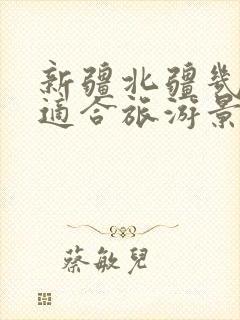 新疆北疆幾
適合旅游景
蔡敏兒